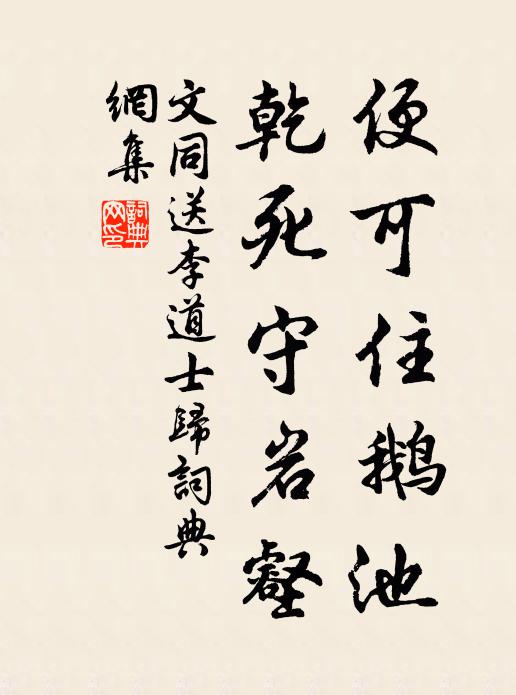 便可住鵝池
乾死守岩壑
文同送李道士歸詞典
網集
詞典網印